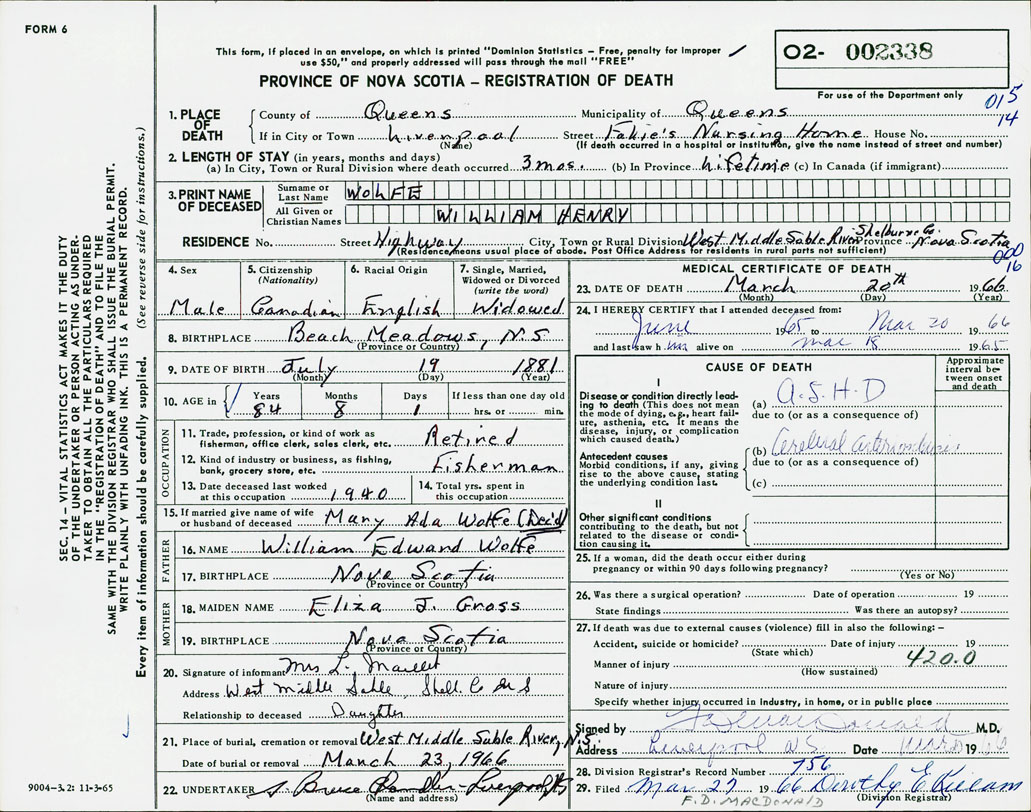 FORM 6
This form, if placed in an envelope, on which is printed "Dominion Statistics – Free, penalty for improper
use $50," and properly addressed will pass through the mail "FREE"
PROVINCE OF NOVA SCOTIA – REGISTRATION OF DEATH
O2- 002338
For use of the Department only
015
14
1. PLACE OF DEATH
County of Queens Municipality of Queens
If in City or Town Liverpool Street Nursing Home House No.
(Name) (If death occurred in a hospital or institution, give the name instead of street and number)
2. LENGTH OF STAY (in years, months and days)
(a) In City, Town or Rural Division where death occurred 3 mos. (b) In Province Lifetime (c) In Canada (if immigrant)
3. PRINT NAME OF DECEASED
Surname or Last Name WOLFE
All Given or Christian Names WILLIAM HENRY
RESIDENCE No. Street Highway City, Town or Rural Division West Middle Sable River Shelburne Co. Province Nova Scotia
(Residence means usual place of abode. Post Office Address for residents in rural parts not sufficient)
000
16
4. Sex Male
5. Citizenship (Nationality) Canadian
6. Racial Origin English
7. Single, Married, Widowed or Divorced (write the word) Widowed
8. BIRTHPLACE Beach Meadows, N.S
(Province or Country)
9. DATE OF BIRTH July 19 1881
(Month) (Day) (Year)
10. AGE in Years 84 Months 8 Days 1 If less than one day old hrs. or min.
OCCUPATION
11. Trade, profession, or kind of work as fisherman, office clerk, sales clerk, etc. Retired
12. Kind of industry or business, as fishing, bank, grocery store, etc. Fisherman
13. Date deceased last worked at this occupation 1940
14. Total yrs. spent in this occupation
15. If married give name of wife or husband of deceased Mary Ada Wolfe (Dec'd)
FATHER
16. NAME William Edward Wolfe
17. BIRTHPLACE Nova Scotia
(Province or Country)
MOTHER
18. MAIDEN NAME Eliza J. Gross
19. BIRTHPLACE Nova Scotia
(Province or Country)
20. Signature of informant Mrs L.
Address West Middle Sable, Shell. Co N S
Relationship to deceased Daughter
21. Place of burial, cremation or removal West Middle Sable River, N.S.
Date of burial or removal March 23, 1966
22. UNDERTAKER Bruce Liverpool NS
(Name and address)
MEDICAL CERTIFICATE OF DEATH
23. DATE OF DEATH March 20th 1966
(Month) (Day) (Year)
24. I HEREBY CERTIFY that I attended deceased from:
June 1965 to Mar 20 1966
and last saw him alive on Mar 18 1965
CAUSE OF DEATH
Approximate interval between onset and death
I
Disease or condition directly leading to death (This does not mean the mode of dying, e.g., heart failure, asthenia, etc. It means the disease, injury, or complication which caused death.)
(a) A.S.H.D
due to (or as a consequence of)
Antecedent causes
Morbid conditions, if any, giving rise to the above cause, stating the underlying condition last.
(b) Cerebral
due to (or as a consequence of)
(c)
II
Other significant conditions
contributing to the death, but not related to the disease or condition causing it.
25. If a woman, did the death occur either during pregnancy or within 90 days following pregnancy?
(Yes or No)
26. Was there a surgical operation? Date of operation 19
State findings Was there an autopsy?
27. If death was due to external causes (violence) fill in also the following: –
Accident, suicide or homicide? Date of injury 19
(State which) 420.0
Manner of injury
(How sustained)
Nature of injury
Specify whether injury occurred in industry, in home, or in public place
Signed by M.D.
Address Liverpool N.S. Date 1966
28. Division Registrar's Record Number 756
29. Filed Mar 27 1966 Dorothy E
(Division Registrar)
F.D. MACDONALD
SEC. 14 – VITAL STATISTICS ACT MAKES IT THE DUTY
OF THE UNDERTAKER OR PERSON ACTING AS UNDER-
TAKER TO OBTAIN ALL THE PARTICULARS REQUIRED
IN THE "REGISTRATION OF DEATH" AND TO FILE THE
SAME WITH THE DIVISION REGISTRAR WHO SHALL ISSUE THE BURIAL PERMIT.
WRITE PLAINLY WITH UNFADING INK. THIS IS A PERMANENT RECORD.
Every item of information should be carefully supplied. (See reverse side for instructions.)
9004–3.2: 11-3-65